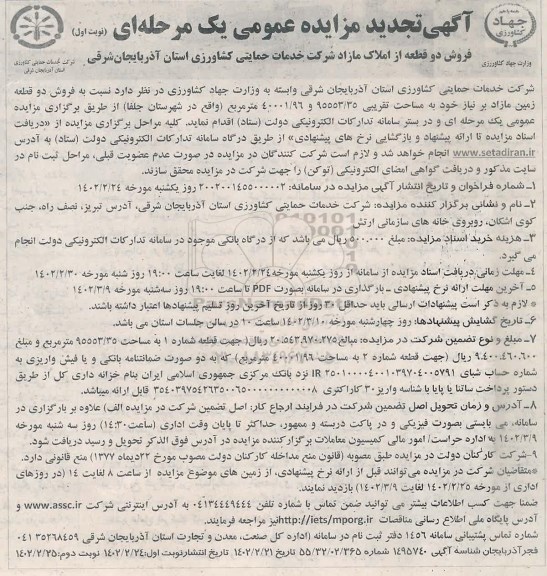 آگهی تجدید مزایده عمومی یک مرحله‌ای (نوبت اول)
جهاد کشاورزی
وزارت جهاد کشاورزی
شرکت خدمات حمایتی کشاورزی
استان آذربایجان شرقی
فروش دو قطعه از املاک مازاد شرکت خدمات حمایتی کشاورزی استان آذربایجان‌شرقی
شرکت خدمات حمایتی کشاورزی استان آذربایجان شرقی وابسته به وزارت جهاد کشاورزی در نظر دارد نسبت به فروش دو قطعه
زمین مازاد بر نیاز خود به مساحت تقریبی ۹۵۵۵۳/۳۵ و ۴۰۰۰۱/۹۶ مترمربع (واقع در شهرستان جلفا) از طریق برگزاری مزایده
عمومی یک مرحله ای و در بستر سامانه تدارکات الکترونیکی دولت (ستاد) اقدام نماید. کلیه مراحل برگزاری مزایده از «دریافت
اسناد مزایده تا ارائه پیشنهاد و بازگشایی نرخ های پیشنهادی» از طریق درگاه سامانه تدارکات الکترونیکی دولت (ستاد) به آدرس
www.setadiran.ir انجام خواهد شد و لازم است شرکت کنندگان در مزایده در صورت عدم عضویت قبلی، مراحل ثبت نام در
سایت مذکور و دریافت گواهی امضای الکترونیکی (توکن) را جهت شرکت در مزایده محقق سازند.
۱ـ شماره فراخوان و تاریخ انتشار آگهی مزایده در سامانه: ۲۰۰۲۰۰۱۴۵۵۰۰۰۰۰۲ روز یکشنبه مورخه ۱۴۰۲/۲/۲۴
۲ـ نام و نشانی برگزار کننده مزایده: شرکت خدمات حمایتی کشاورزی استان آذربایجان شرقی، آدرس تبریز، نصف راه، جنب
کوی اشکان، روبروی خانه های سازمانی ارتش
۳ـ هزینه خرید اسناد مزایده: مبلغ ۵۰۰.۰۰۰ ریال می باشد که از درگاه بانکی موجود در سامانه تدارکات الکترونیکی دولت انجام
می گیرد.
۴ـ مهلت زمانی دریافت اسناد مزایده از سامانه از روز یکشنبه مورخه ۱۴۰۲/۲/۲۴ لغایت ساعت ۱۹:۰۰ روز شنبه مورخه ۱۴۰۲/۲/۳۰
۵ـ آخرین مهلت ارائه نرخ پیشنهادی ـ بارگذاری در سامانه بصورت PDF تا ساعت ۱۹:۰۰ روز سه‌شنبه مورخه ۱۴۰۲/۳/۹
* لازم به ذکر است پیشنهادات ارسالی باید حداقل ۳۰ روز از تاریخ آخرین روز تسلیم پیشنهادها اعتبار داشته باشند.
۶ـ تاریخ گشایش پیشنهادها: روز چهارشنبه مورخه ۱۴۰۲/۳/۱۰ ساعت ۱۰ در سالن جلسات استان می باشد.
۷ـ مبلغ و نوع تضمین شرکت در مزایده: مبالغ ۲۰.۵۴۳.۹۷۰.۲۷۵ ریال( جهت قطعه شماره ۱ به مساحت ۹۵۵۵۳/۳۵ مترمربع و مبلغ
۹.۴۰۰.۴۶۰.۶۰۰ ریال (جهت قطعه شماره ۲ به مساحت ۴۰۰۰۱/۹۶ مترمربع) که به دو صورت ضمانتنامه بانکی و یا فیش واریزی به
شماره حساب شبای IR ۲۵۰۱۰۰۰۰۴۰۰۱۰۳۹۷۰۴۰۰۵۷۹۱ نزد بانک مرکزی جمهوری اسلامی ایران بنام خزانه داری کل از طریق
دستور پرداخت ساتنا یا پایا با شناسه واریز ۳۰ کاراکتری قابل ارائه میباشد.
۸ـ آدرس و زمان تحویل اصل تضمین شرکت در فرایند ارجاع کار: اصل تضمین شرکت در مزایده (الف) علاوه بر بارگزاری در
سامانه، می بایستی بصورت فیزیکی و در پاکت دربسته و ممهور، حداکثر تا پایان وقت اداری (ساعت ۱۴:۳۰) روز سه شنبه مورخه
۱۴۰۲/۳/۹ به اداره حراست/ امور مالی کمیسیون معاملات برگزار کننده مزایده در آدرس فوق الذکر تحویل و رسید دریافت شود.
۹ـ شرکت کارکنان دولت در مزایده طبق مصوبه (قانون منع مداخله کارکنان دولت مصوب مورخ ۲۲دیماه ۱۳۳۷) منع قانونی دارد.
*متقاضیان شرکت در مزایده می‌توانند قبل از ارائه نرخ پیشنهادی، از زمین های موضوع مزایده از ساعت ۸ لغایت ۱۴ (در روزهای
اداری از مورخه ۱۴۰۲/۲/۲۵ لغایت ۱۴۰۲/۳/۹) بازدید نمایند.
ضمنا جهت کسب اطلاعات بیشتر می توانید ضمن تماس با شماره تلفن ۰۴۱۳۴۴۴۹۴۴۴ به آدرس اینترنتی شرکت www.assc.ir و
آدرس پایگاه ملی اطلاع رسانی مناقصات http://iets/mporg.ir نیز مراجعه فرمایند.
شماره تماس پشتیبانی سامانه ۱۴۵۶ دفتر ثبت نام در سامانه (اداره کل صنعت، معدن و تجارت استان آذربایجان شرقی ۳۵۲۶۸۴۵۹ ۰۴۱
فجرآذربایجان شناسه آگهی ۱۴۹۵۷۴۰ شماره ۵۵/۳۲/۰۲/۳۶۵ تاریخ ۱۴۰۲/۲/۲۱ تاریخ انتشارنوبت اول: ۱۴۰۲/۲/۲۴ نوبت دوم: ۱۴۰۲/۲/۲۵